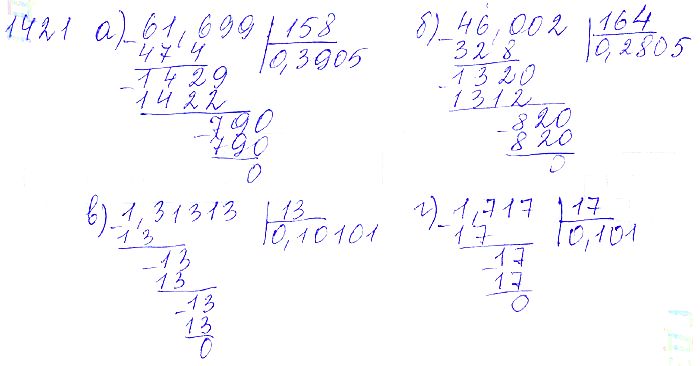 1421 а) 61,699 | 158 б) 46,002 | 164
- 47 4 | 0,3905 - 32 8 | 0,2805
- 1429 - 1320
1422 1312
- 790 - 820
790 820
0 0
в) 1,31313 | 13 г) 1,717 | 17
- 13 | 0,10101 - 17 | 0,101
- 13 - 17
13 17
- 13 0
13
0